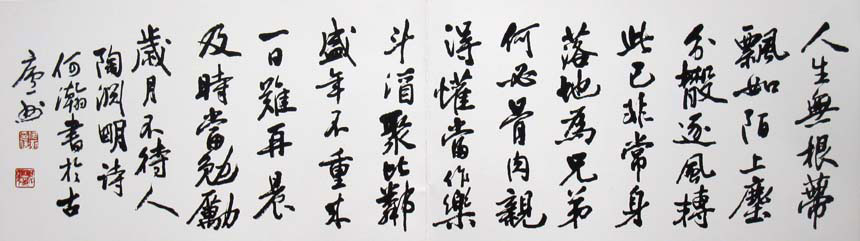 人生無根蒂
飄如陌上塵
分散逐風轉
此已非常身
落地為兄弟
何必骨肉親
得懽當作樂
斗酒聚比鄰
盛年不重來
一日難再晨
及時當勉勵
歲月不待人
陶淵明詩
何瀚書於古
廬州